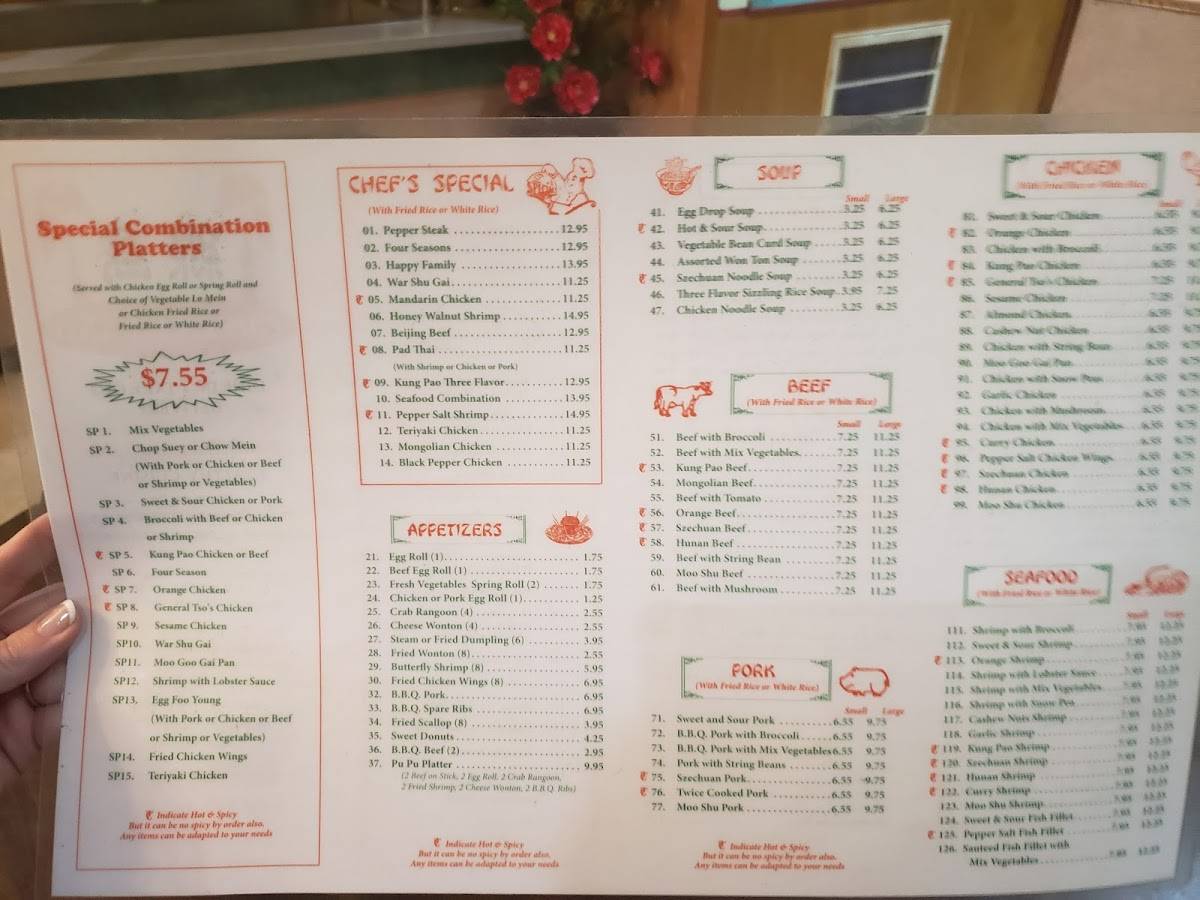 Special Combination
Platters
(Served with Chicken Egg Roll or Spring Roll and
Choice of Vegetable Lo Mein
or Chicken Fried Rice or
Fried Rice or White Rice)
$7.55
SP 1. Mix Vegetables
SP 2. Chop Suey or Chow Mein
(With Pork or Chicken or Beef
or Shrimp or Vegetables)
SP 3. Sweet & Sour Chicken or Pork
SP 4. Broccoli with Beef or Chicken
or Shrimp
SP 5. Kung Pao Chicken or Beef
SP 6. Four Season
SP 7. Orange Chicken
SP 8. General Tso's Chicken
SP 9. Sesame Chicken
SP10. War Shu Gai
SP11. Moo Goo Gai Pan
SP12. Shrimp with Lobster Sauce
SP13. Egg Foo Young
(With Pork or Chicken or Beef
or Shrimp or Vegetables)
SP14. Fried Chicken Wings
SP15. Teriyaki Chicken
Indicate Hot & Spicy
But it can be no spicy by order also.
Any items can be adapted to your needs
CHEF'S SPECIAL
(With Fried Rice or White Rice)
01. Pepper Steak 12.95
02. Four Seasons 12.95
03. Happy Family 13.95
04. War Shu Gai 11.25
05. Mandarin Chicken 11.25
06. Honey Walnut Shrimp 14.95
07. Beijing Beef 12.95
08. Pad Thai 11.25
(With Shrimp or Chicken or Pork)
09. Kung Pao Three Flavor 12.95
10. Seafood Combination 13.95
11. Pepper Salt Shrimp 14.95
12. Teriyaki Chicken 11.25
13. Mongolian Chicken 11.25
14. Black Pepper Chicken 11.25
APPETIZERS
21. Egg Roll (1) 1.75
22. Beef Egg Roll (1) 1.75
23. Fresh Vegetables Spring Roll (2) 1.75
24. Chicken or Pork Egg Roll (1) 1.25
25. Crab Rangoon (4) 2.55
26. Cheese Wonton (4) 2.55
27. Steam or Fried Dumpling (6) 3.95
28. Fried Wonton (8) 2.55
29. Butterfly Shrimp (8) 5.95
30. Fried Chicken Wings (8) 6.95
32. B.B.Q. Pork 6.95
33. B.B.Q. Spare Ribs 6.95
34. Fried Scallop (8) 3.95
35. Sweet Donuts 4.25
36. B.B.Q. Beef (2) 2.95
37. Pu Pu Platter 9.95
(2 Beef on Stick, 2 Egg Roll, 2 Crab Rangoon,
2 Fried Shrimp, 2 Cheese Wonton, 2 B.B.Q. Ribs)
Indicate Hot & Spicy
But it can be no spicy by order also.
Any items can be adapted to your needs
SOUP
Small Large
41. Egg Drop Soup 3.25 6.25
42. Hot & Sour Soup 3.25 6.25
43. Vegetable Bean Curd Soup 3.25 6.25
44. Assorted Won Ton Soup 3.25 6.25
45. Szechuan Noodle Soup 3.25 6.25
46. Three Flavor Sizzling Rice Soup 3.95 7.25
47. Chicken Noodle Soup 3.25 6.25
BEEF
(With Fried Rice or White Rice)
Small Large
51. Beef with Broccoli 7.25 11.25
52. Beef with Mix Vegetables 7.25 11.25
53. Kung Pao Beef 7.25 11.25
54. Mongolian Beef 7.25 11.25
55. Beef with Tomato 7.25 11.25
56. Orange Beef 7.25 11.25
57. Szechuan Beef 7.25 11.25
58. Hunan Beef 7.25 11.25
59. Beef with String Bean 7.25 11.25
60. Moo Shu Beef 7.25 11.25
61. Beef with Mushroom 7.25 11.25
PORK
(With Fried Rice or White Rice)
Small Large
71. Sweet and Sour Pork 6.55 9.75
72. B.B.Q. Pork with Broccoli 6.55 9.75
73. B.B.Q. Pork with Mix Vegetables 6.55 9.75
74. Pork with String Beans 6.55 9.75
75. Szechuan Pork 6.55 9.75
76. Twice Cooked Pork 6.55 9.75
77. Moo Shu Pork 6.55 9.75
Indicate Hot & Spicy
But it can be no spicy by order also.
Any items can be adapted to your needs
CHICKEN
(With Fried Rice or White Rice)
Small
81. Sweet & Sour Chicken 6.55
82. Orange Chicken 6.55
83. Chicken with Broccoli 6.55
84. Kung Pao Chicken 6.55
85. General Tso's Chicken 7.25
86. Sesame Chicken 7.25
87. Almond Chicken 6.55
88. Cashew Nut Chicken 6.55
89. Chicken with String Bean 6.55
90. Moo Goo Gai Pan 6.55 9.75
91. Chicken with Snow Peas 6.55 9.75
92. Garlic Chicken 6.55 9.75
93. Chicken with Mushroom 6.55 9.75
94. Chicken with Mix Vegetables 6.55 9.75
95. Curry Chicken 6.55 9.75
96. Pepper Salt Chicken Wings 6.55 9.75
97. Szechuan Chicken 6.55 9.75
98. Hunan Chicken 6.55 9.75
99. Moo Shu Chicken 6.55 9.75
SEAFOOD
(With Fried Rice or White Rice)
Small Large
111. Shrimp with Broccoli
112. Sweet & Sour Shrimp
113. Orange Shrimp
114. Shrimp with Lobster Sauce
115. Shrimp with Mix Vegetables
116. Shrimp with Snow Pea
117. Cashew Nuts Shrimp
118. Garlic Shrimp
119. Kung Pao Shrimp
120. Szechuan Shrimp
121. Hunan Shrimp
122. Curry Shrimp
123. Moo Shu Shrimp
124. Sweet & Sour Fish Fillet
125. Pepper Salt Fish Fillet
126. Sauteed Fish Fillet with
Mix Vegetables